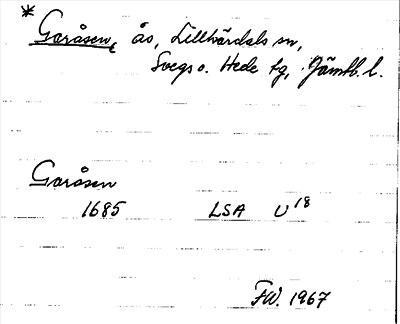 * Garåsen, ås, Lillhärdals sn,
Svegs o. Hede tg, Jämtl. l.
Garåsen
1685 LSA U18
FW. 1967